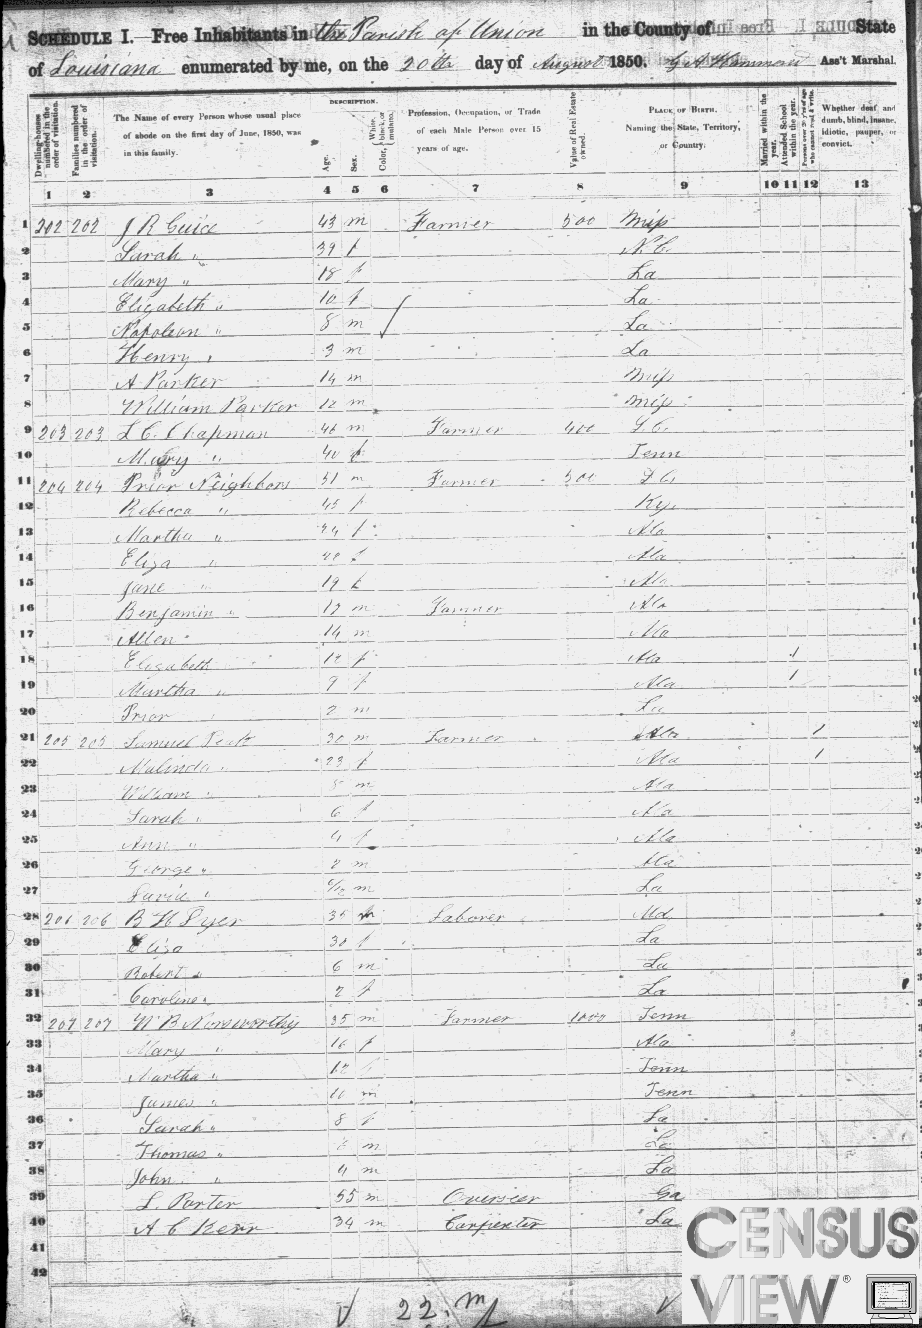 SCHEDULE I. Free Inhabitants in the Parish of Union in the County of State
of Louisiana enumerated by me, on the 20th day of August 1850. Ass't Marshal.
Dwelling-houses numbered in the order of visitation.
Families numbered in the order of visitation.
The Name of every Person whose usual place of abode on the first day of June, 1850, was in this family.
DESCRIPTION.
Age.
Sex.
Color, White, black, or mulatto.
Profession, Occupation, or Trade of each Male Person over 15 years of age.
Value of Real Estate owned.
PLACE OF BIRTH. Naming the State, Territory, or Country.
Married within the year.
Attended School within the year.
Persons over 20 y'rs of age who cannot read & write.
Whether deaf and dumb, blind, insane, idiotic, pauper, or convict.
1 2 3 4 5 6 7 8 9 10 11 12 13
1 202 202 J R Guice 43 m Farmer 500 Miss
2 Sarah " 39 f N.C.
3 Mary " 18 f La
4 Elizabeth " 10 f La
5 Napoleon " 8 m La
6 Henry " 3 m La
7 A Parker 14 m Miss
8 William Parker 12 m Miss
9 203 203 L C Chapman 46 m Farmer 400 S.C.
10 Mary " 40 f Tenn
11 204 204 Prior Neighbors 51 m Farmer 500 S C
12 Rebecca " 45 f Ky
13 Martha " 24 f Ala
14 Eliza " f Ala
15 Jane " 19 f Ala
16 Benjamin " m Farmer Ala
17 Allen " 14 m Ala
18 Elizabeth 12 f Ala 1
19 Martha " 9 f Ala 1
20 Prior " 2 m La
21 205 205 Samuel 30 m Farmer Ala 1
22 Malinda " 23 f Ala 1
23 William " m Ala
24 Sarah " 6 f Ala
25 Ann " 4 f Ala
26 George " m Ala
27 m La
28 206 206 B H 35 m Laborer Md
29 Eliza 30 f La
30 Robert " 6 m La
31 Caroline " 2 f La
32 207 207 W B Norsworthy 35 m Farmer 1000 Tenn
33 Mary " 16 f Ala
34 Martha " 12 f Tenn
35 James " 10 m Tenn
36 Sarah " 8 f La
37 Thomas " m La
38 John " 4 m La
39 L. Porter 55 m Overseer Ga
40 A C Kerr 34 m Carpenter La
41
42
22 m
CENSUS
VIEW®